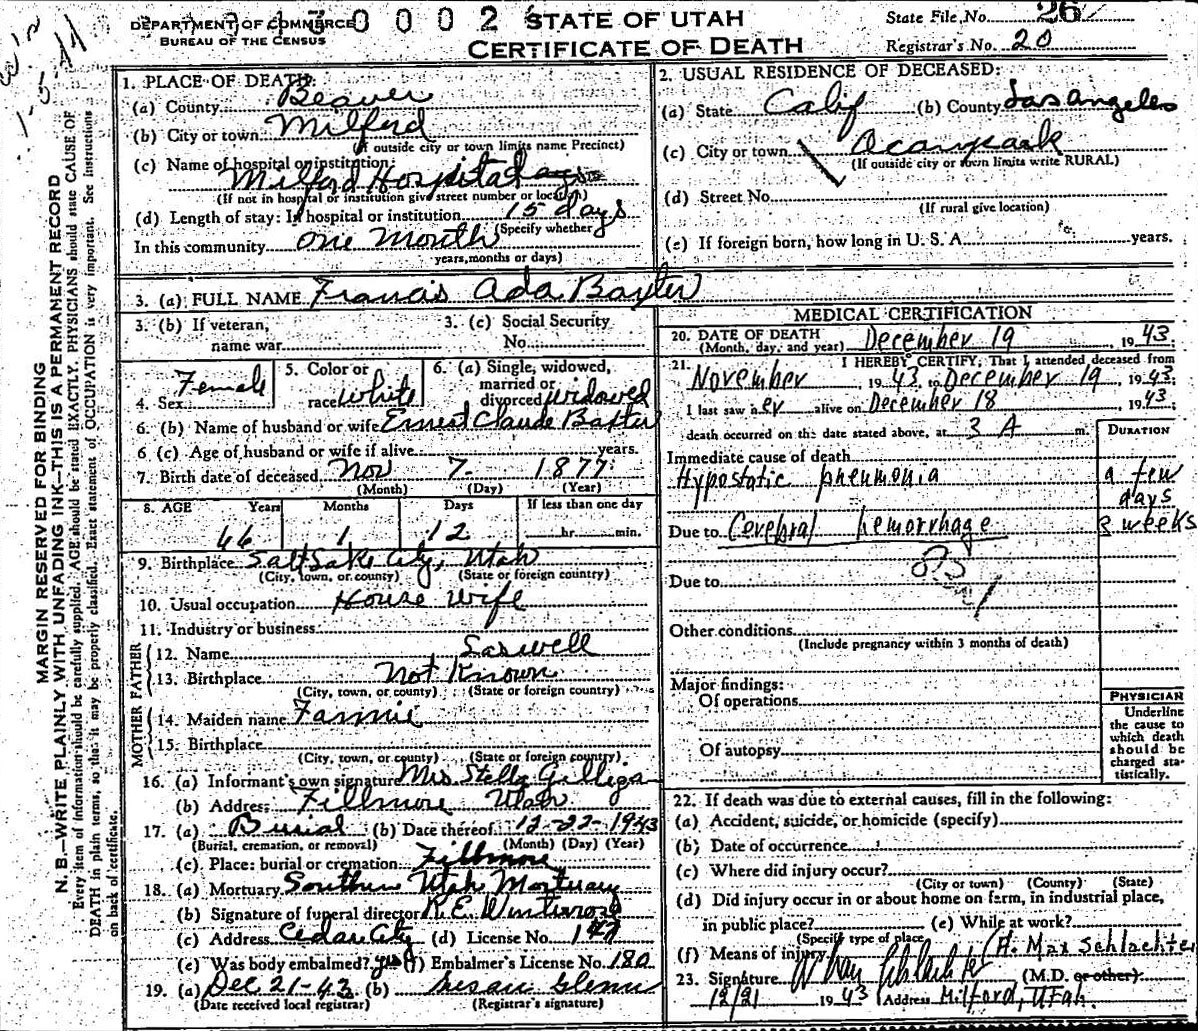 DEPARTMENT OF COMMERCE
BUREAU OF THE CENSUS
0 0 0 2
STATE OF UTAH
CERTIFICATE OF DEATH
State File No. 26
Registrar's No. 20
MARGIN RESERVED FOR BINDING
N. B.—WRITE PLAINLY WITH UNFADING INK—THIS IS A PERMANENT RECORD
Every item of information should be carefully supplied. AGE should be stated EXACTLY. PHYSICIANS should state CAUSE OF
DEATH in plain terms, so that it may be properly classified. Exact statement of OCCUPATION is very important. See instructions
on back of certificate.
1. PLACE OF DEATH:
(a) County Beaver
(b) City or town Milford
(If outside city or town limits name Precinct)
(c) Name of hospital or institution:
Milford Hospital
(If not in hospital or institution give street number or location)
(d) Length of stay: In hospital or institution 15 days
(Specify whether
In this community one Month
years, months or days)
2. USUAL RESIDENCE OF DECEASED:
(a) State Calif (b) County Los Angeles
(c) City or town Oceanpark
(If outside city or town limits write RURAL)
(d) Street No.
(If rural give location)
(e) If foreign born, how long in U. S. A. years.
3. (a) FULL NAME Francis Ada Baxter
3. (b) If veteran,
name war
3. (c) Social Security
No.
4. Sex Female
5. Color or
race white
6. (a) Single, widowed,
married or
divorced widowed
6. (b) Name of husband or wife Ernest Claude Baxter
6 (c) Age of husband or wife if alive years.
7. Birth date of deceased Nov 7 1877
(Month) (Day) (Year)
8. AGE Years Months Days If less than one day
66 1 12 hr. min.
9. Birthplace Salt Lake City, Utah
(City, town, or county) (State or foreign country)
10. Usual occupation House wife
11. Industry or business
FATHER
12. Name
13. Birthplace Not Known
(City, town, or county) (State or foreign country)
MOTHER
14. Maiden name Fannie
15. Birthplace
(City, town, or county) (State or foreign country)
16. (a) Informant's own signature Mrs Stella
(b) Address Fillmore Utah
17. (a) Burial (b) Date thereof 12-22-1943
(Burial, cremation, or removal) (Month) (Day) (Year)
(c) Place: burial or cremation Fillmore
18. (a) Mortuary Southern Utah Mortuary
(b) Signature of funeral director R. E.
(c) Address Cedar City (d) License No. 147
(e) Was body embalmed? yes (f) Embalmer's License No. 180
19. (a) Dec. 21-43 (b) Glenn
(Date received local registrar) (Registrar's signature)
MEDICAL CERTIFICATION
20. DATE OF DEATH December 19, 1943
(Month, day, and year)
21. I HEREBY CERTIFY, That I attended deceased from
November, 1943, to December 19, 1943;
I last saw h er alive on December 18 1943;
death occurred on the date stated above, at 3 A m.
DURATION
Immediate cause of death
Hypostatic pneumonia a few
days
Due to Cerebral hemorrhage 3 weeks
Due to
Other conditions
(Include pregnancy within 3 months of death)
Major findings:
Of operations
Of autopsy
PHYSICIAN
Underline
the cause to
which death
should be
charged sta-
tistically.
22. If death was due to external causes, fill in the following:
(a) Accident, suicide, or homicide (specify)
(b) Date of occurrence
(c) Where did injury occur?
(City or town) (County) (State)
(d) Did injury occur in or about home on farm, in industrial place,
in public place? (e) While at work?
(Specify type of place)
(f) Means of injury (A. Max Schlachter
23. Signature (M.D. or other)
12/21 1943 Address Milford, Utah.